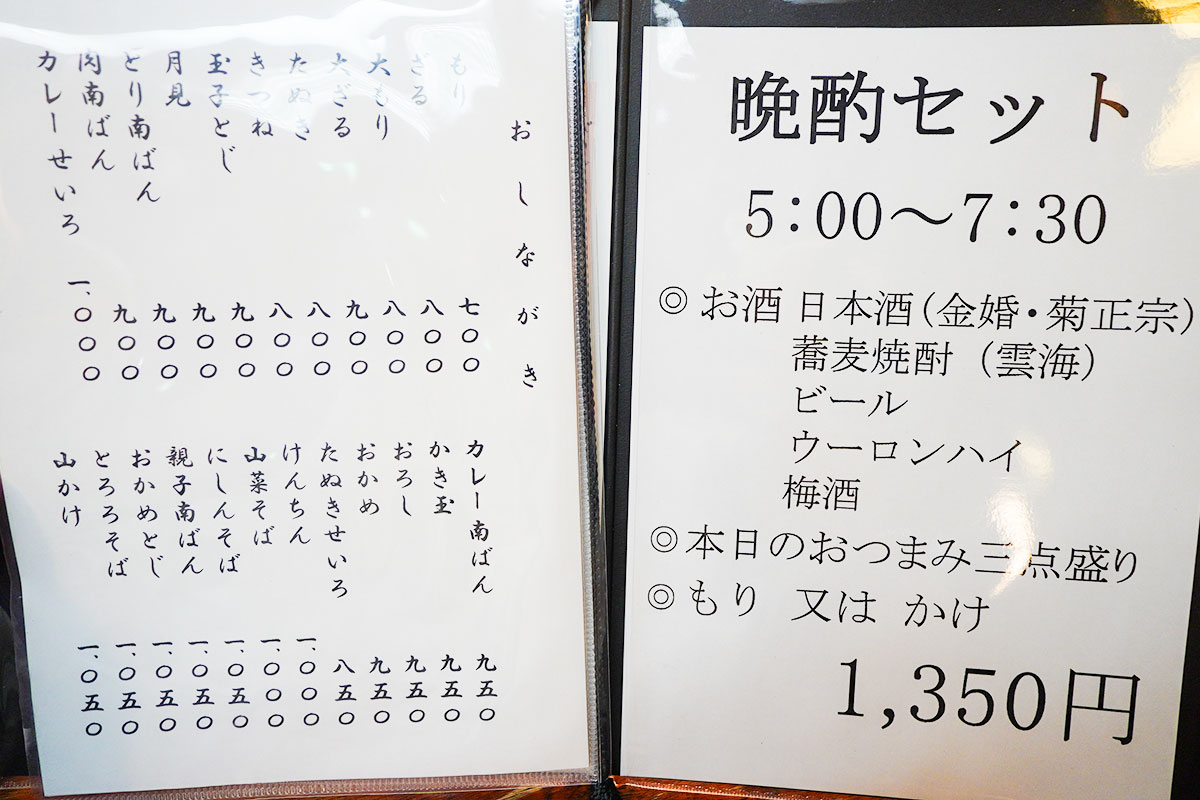 おしながき
もり 七〇〇
ざる 八〇〇
大もり 八〇〇
大ざる 九〇〇
たぬき 八〇〇
きつね 八〇〇
玉子とじ 九〇〇
月見 九〇〇
とり南ばん 九〇〇
肉南ばん 九〇〇
カレーせいろ 一、〇〇〇
カレー南ばん 九五〇
かき玉 九五〇
おろし 九五〇
おかめ 九五〇
たぬきせいろ 八五〇
けんちん 一、〇〇〇
山菜そば 一、〇〇〇
にしんそば 一、〇五〇
親子南ばん 一、〇五〇
おかめとじ 一、〇五〇
とろろそば 一、〇五〇
山かけ 一、〇五〇
晩酌セット
5:00～7:30
◎お酒 日本酒(金婚・菊正宗)
蕎麦焼酎 (雲海)
ビール
ウーロンハイ
梅酒
◎本日のおつまみ三点盛り
◎もり 又は かけ
1,350円